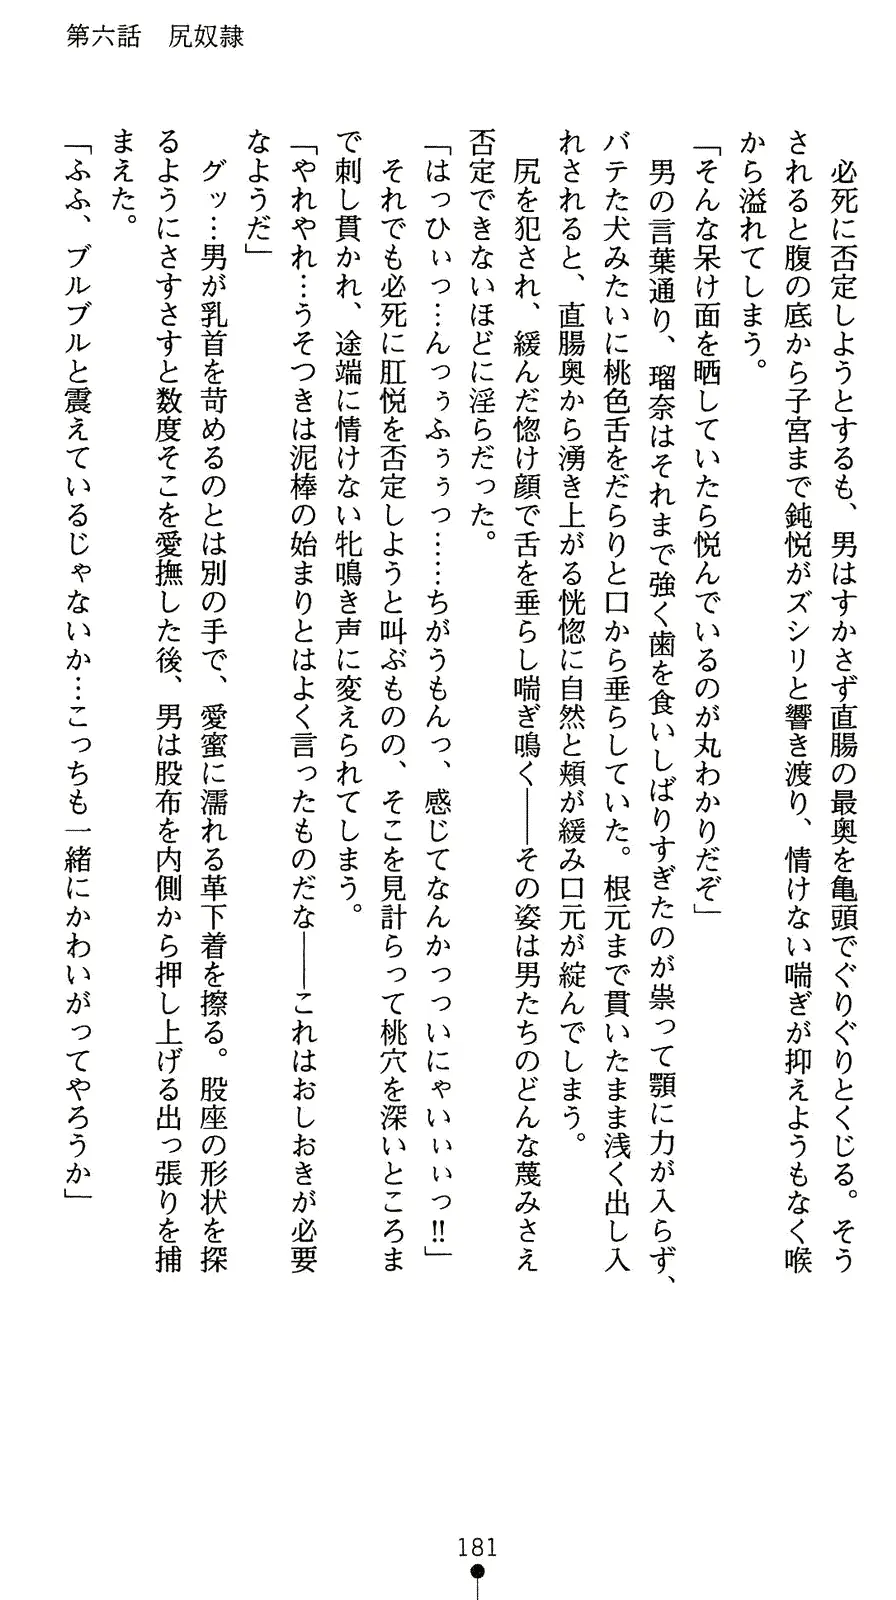 第六話　尻奴隷
　必死に否定しようとするも、男はすかさず直腸の最奥を亀頭でぐりぐりとくじる。そう
されると腹の底から子宮まで鈍悦がズシリと響き渡り、情けない喘ぎが抑えようもなく喉
から溢れてしまう。
「そんな呆け面を晒していたら悦んでいるのが丸わかりだぞ」
　男の言葉通り、瑠奈はそれまで強く歯を食いしばりすぎたのが祟って顎に力が入らず、
バテた犬みたいに桃色舌をだらりと口から垂らしていた。根元まで貫いたまま浅く出し入
れされると、直腸奥から湧き上がる恍惚に自然と頬が緩み口元が綻んでしまう。
　尻を犯され、緩んだ惚け顔で舌を垂らし喘ぎ鳴く――その姿は男たちのどんな蔑みさえ
否定できないほどに淫らだった。
「はっひぃっ…んっぅふぅぅっ……ちがうもんっ、感じてなんかっついにゃいぃぃっ!!」
　それでも必死に肛悦を否定しようと叫ぶものの、そこを見計らって桃穴を深いところま
で刺し貫かれ、途端に情けない牝鳴き声に変えられてしまう。
「やれやれ…うそつきは泥棒の始まりとはよく言ったものだな――これはおしおきが必要
なようだ」
　グッ…男が乳首を苛めるのとは別の手で、愛蜜に濡れる革下着を擦る。股座の形状を探
るようにさすさすと数度そこを愛撫した後、男は股布を内側から押し上げる出っ張りを捕
まえた。
「ふふ、ブルブルと震えているじゃないか…こっちも一緒にかわいがってやろうか」
181